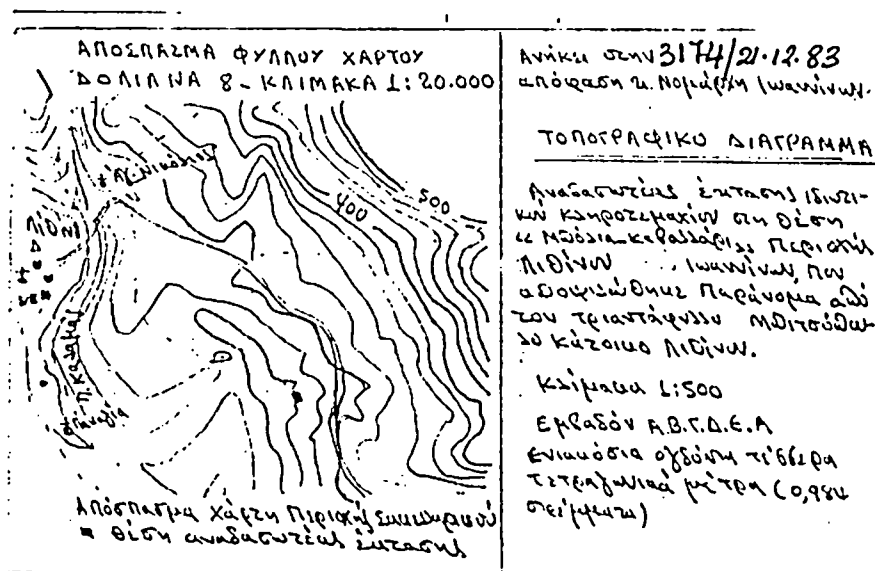 ΑΠΟΣΠΑΣΜΑ ΦΥΛΛΟΥ ΧΑΡΤΟΥ
ΔΟΛΙΑΝΑ 8 - ΚΛΙΜΑΚΑ 1:20.000
Αγ. Νικόλαος
500
400
Λίθιν
Π. Καλαμάς
Παναγία
Απόσπασμα χάρτη Περιοχής
θέση αναδασωτέας έκτασης
Ανήκει στην 3174/21.12.83
απόφαση κ. Νομάρχη Ιωαννίνων.
ΤΟΠΟΓΡΑΦΙΚΟ ΔΙΑΓΡΑΜΜΑ
Αναδασωτέας έκτασης ιδιωτι-
κών κληροτεμαχίων στη θέση
"Μπόλια-Καβαλλάρι" Περιοχής
Λιθίνου Ιωαννίνων, που
αποψιλώθηκε παράνομα από
τον τριαντάφυλλο
κάτοικο Λιθίνου.
Κλίμακα 1:500
Εμβαδόν Α.Β.Γ.Δ.Ε.Α
Ενιακόσια ογδόντα τέσσερα
τετραγωνικά μέτρα (0,984
στρέμματα)